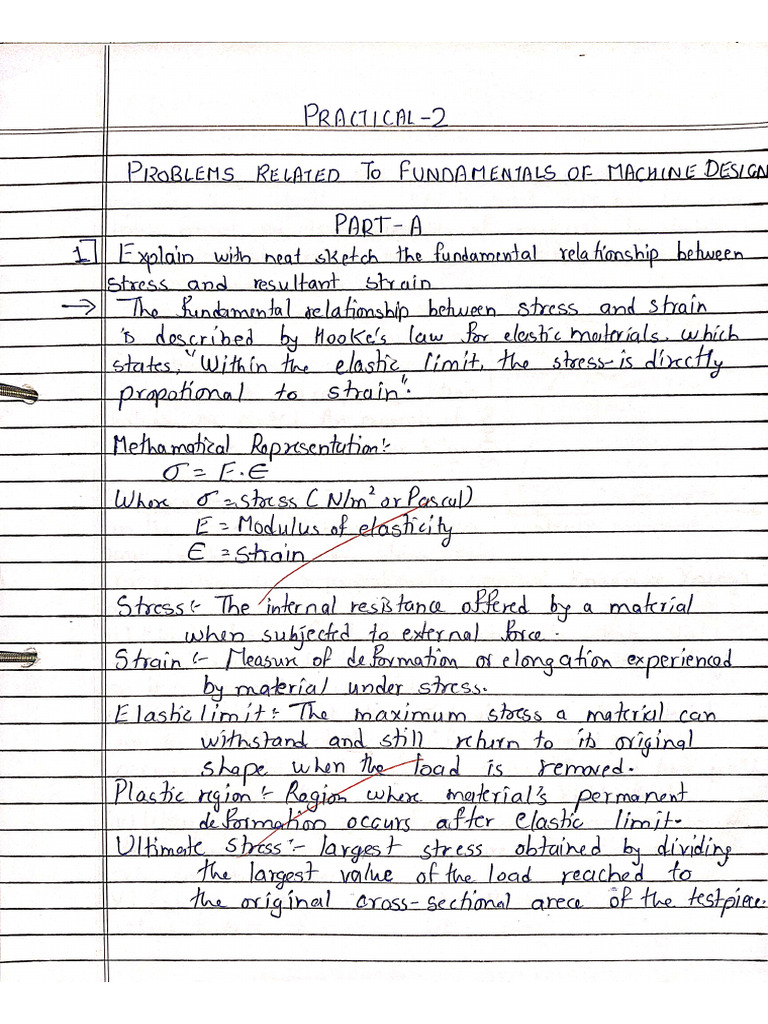 PRACTICAL-2
PROBLEMS RELATED TO FUNDAMENTALS OF MACHINE DESIGN
PART-A
1] Explain with neat sketch the fundamental relationship between
stress and resultant strain
→ The fundamental relationship between stress and strain
is described by Hooke's law for elastic materials. which
states, "Within the elastic limit, the stress is directly
propotional to strain".
Methamatical Representation:-
σ = E·∈
Where σ = stress (N/m² or Pascal)
E = Modulus of elasticity
∈ = strain
Stress:- The internal resistance offered by a material
when subjected to external force.
Strain:- Measure of deformation or elongation experienced
by material under stress.
Elastic limit:- The maximum stress a material can
withstand and still return to its original
shape when the load is removed.
Plastic region:- Region where material's permanent
deformation occurs after elastic limit.
Ultimate stress:- largest stress obtained by dividing
the largest value of the load reached to
the original cross-sectional arece of the testpiece.